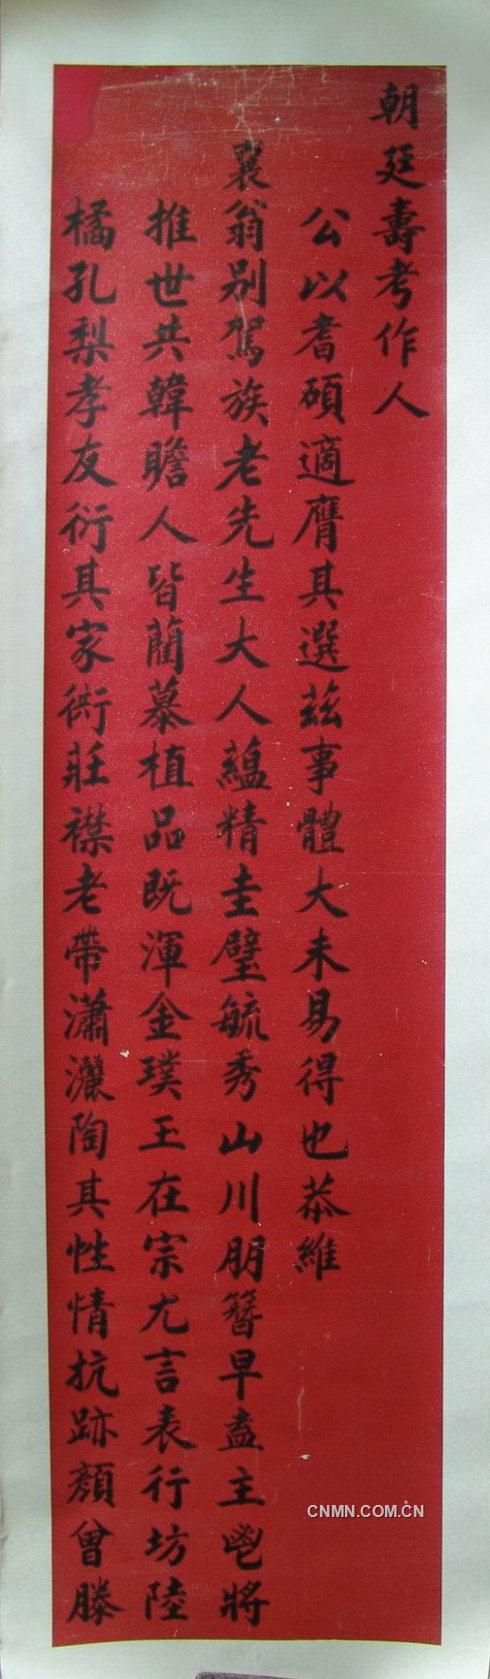 朝廷壽考作人
公以耆碩適膺其選茲事體大未易得也恭維
襄翁別駕族老先生大人蘊精圭璧毓秀山川朋簪早盍主鬯將
推世共韓瞻人皆藺慕植品既渾金璞玉在宗尤言表行坊陸
橘孔梨孝友衍其家衖莊襟老帶瀟灑陶其性情抗跡顏曾滕
CNMN.COM.CN